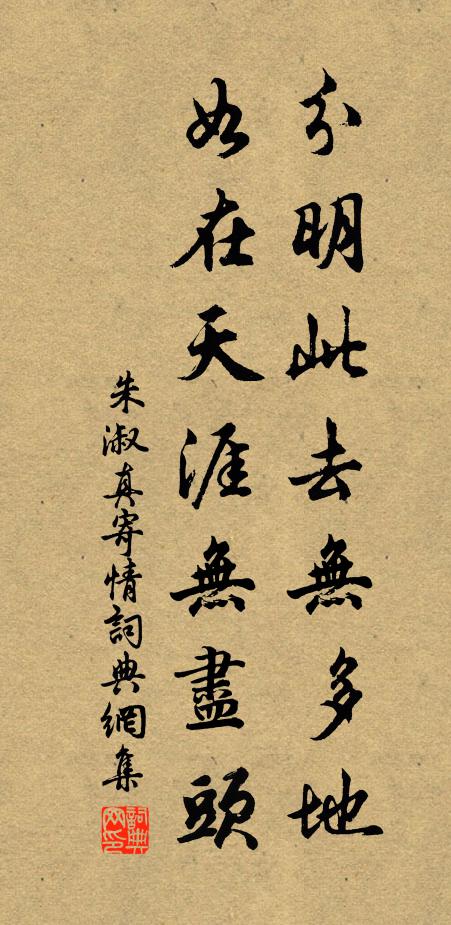 分明此去無多地
如在天涯無盡頭
朱淑真寄情詞典網集
詞典网印